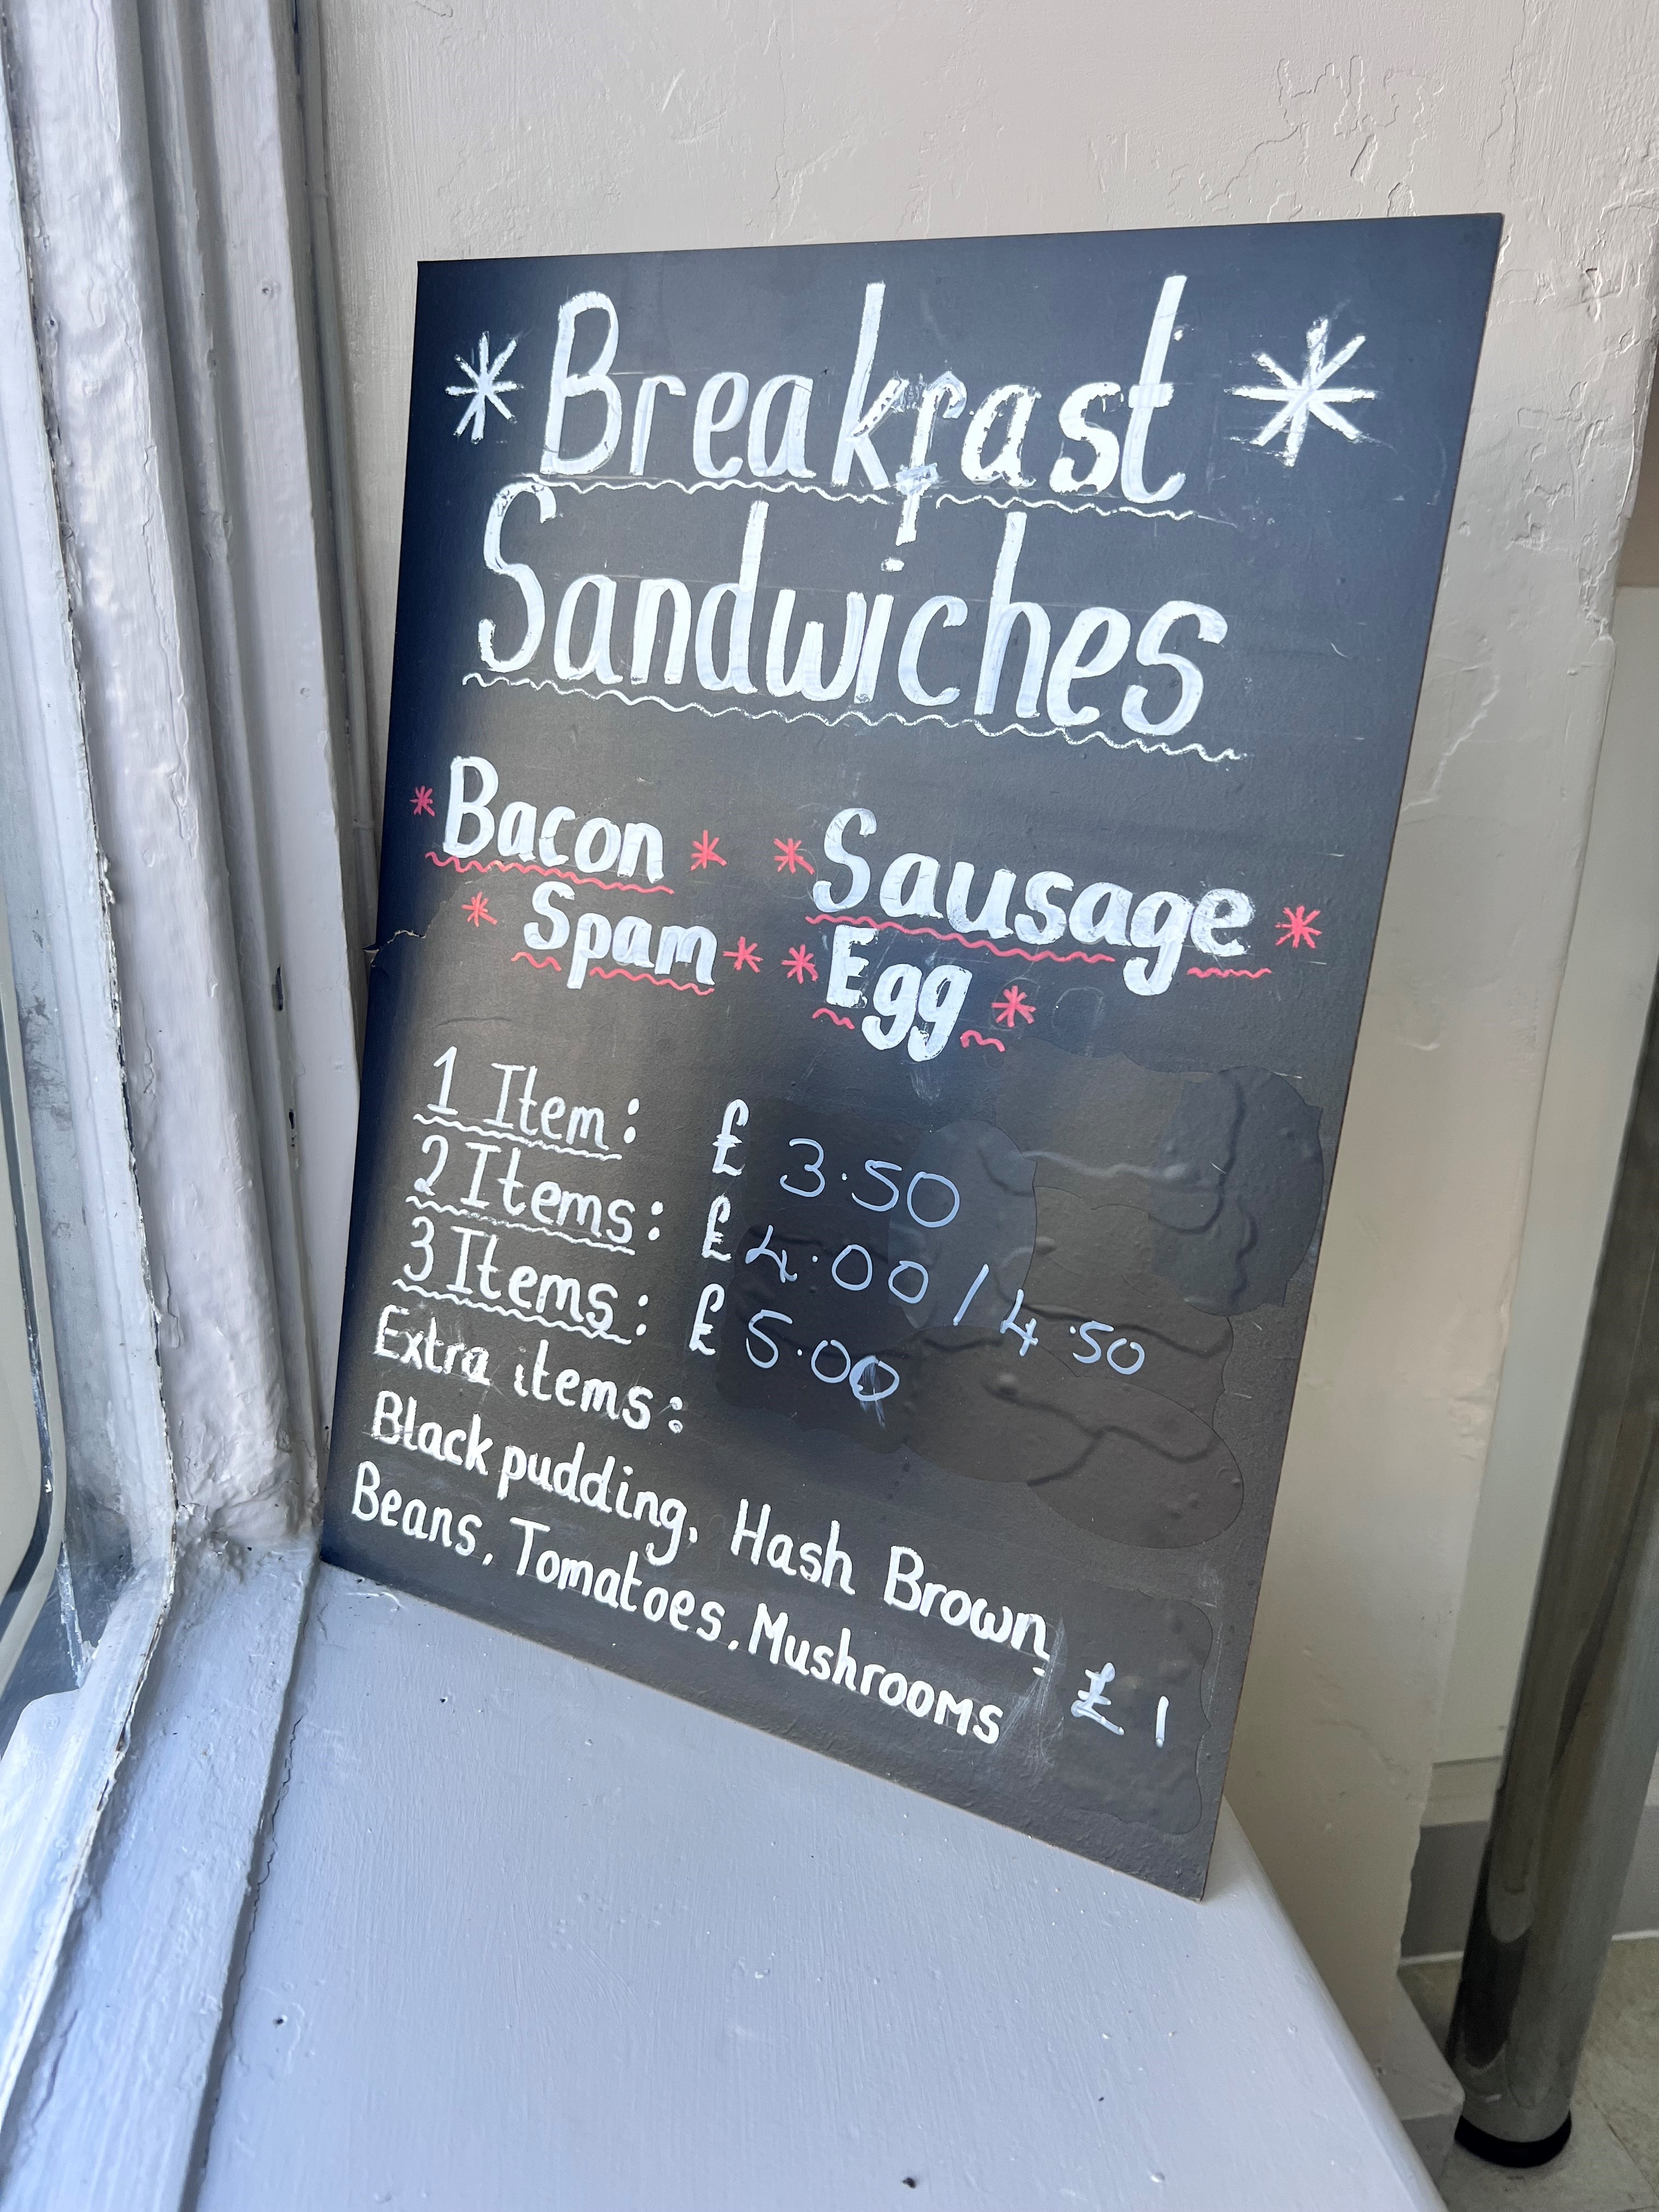 * Breakfast *
Sandwiches
* Bacon * * Sausage *
* Spam * * Egg *
1 Item: £ 3.50
2 Items: £ 4.00 / 4.50
3 Items: £ 5.00
Extra items:
Black pudding, Hash Brown,
Beans, Tomatoes, Mushrooms £ 1